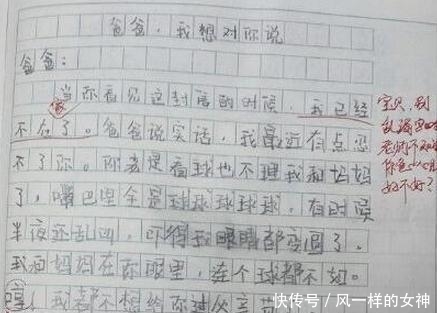 爸爸，我想对你说
爸爸：
当你看见这封信的时候，我已经
不在了。爸爸说实话，我最近有点忍
不了你。你老是看球也不理我和妈妈
了，嘴巴里全是球球球球球，有时候
半夜还乱叫，吓得我眼睛都变圆了。
我和妈妈在你眼里，连个球都不如。
哼！我都不想给你过父亲节
宝贝，别
乱
老师不
你爸
好不好？
快传号／风一样的女神